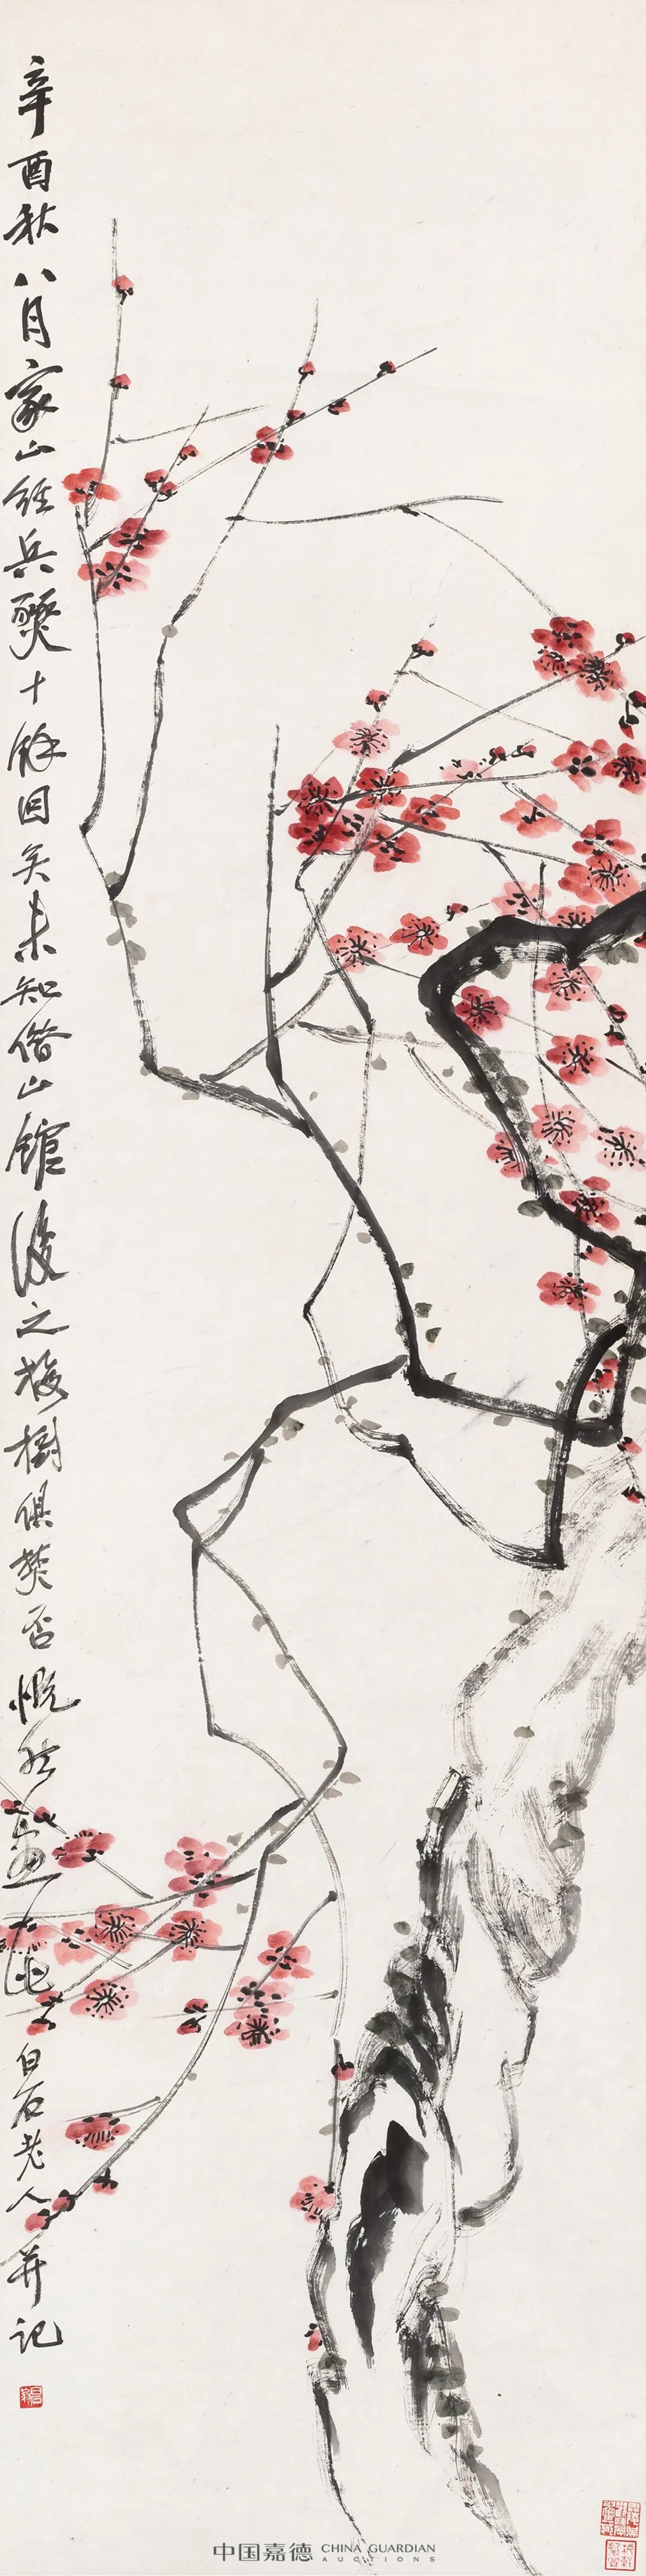 辛酉秋八月家山经兵燹十余回矣未知借山馆后之梅树俱焚否慨然画此白石老人并记
中国嘉德 CHINA GUARDIAN
AUCTIONS